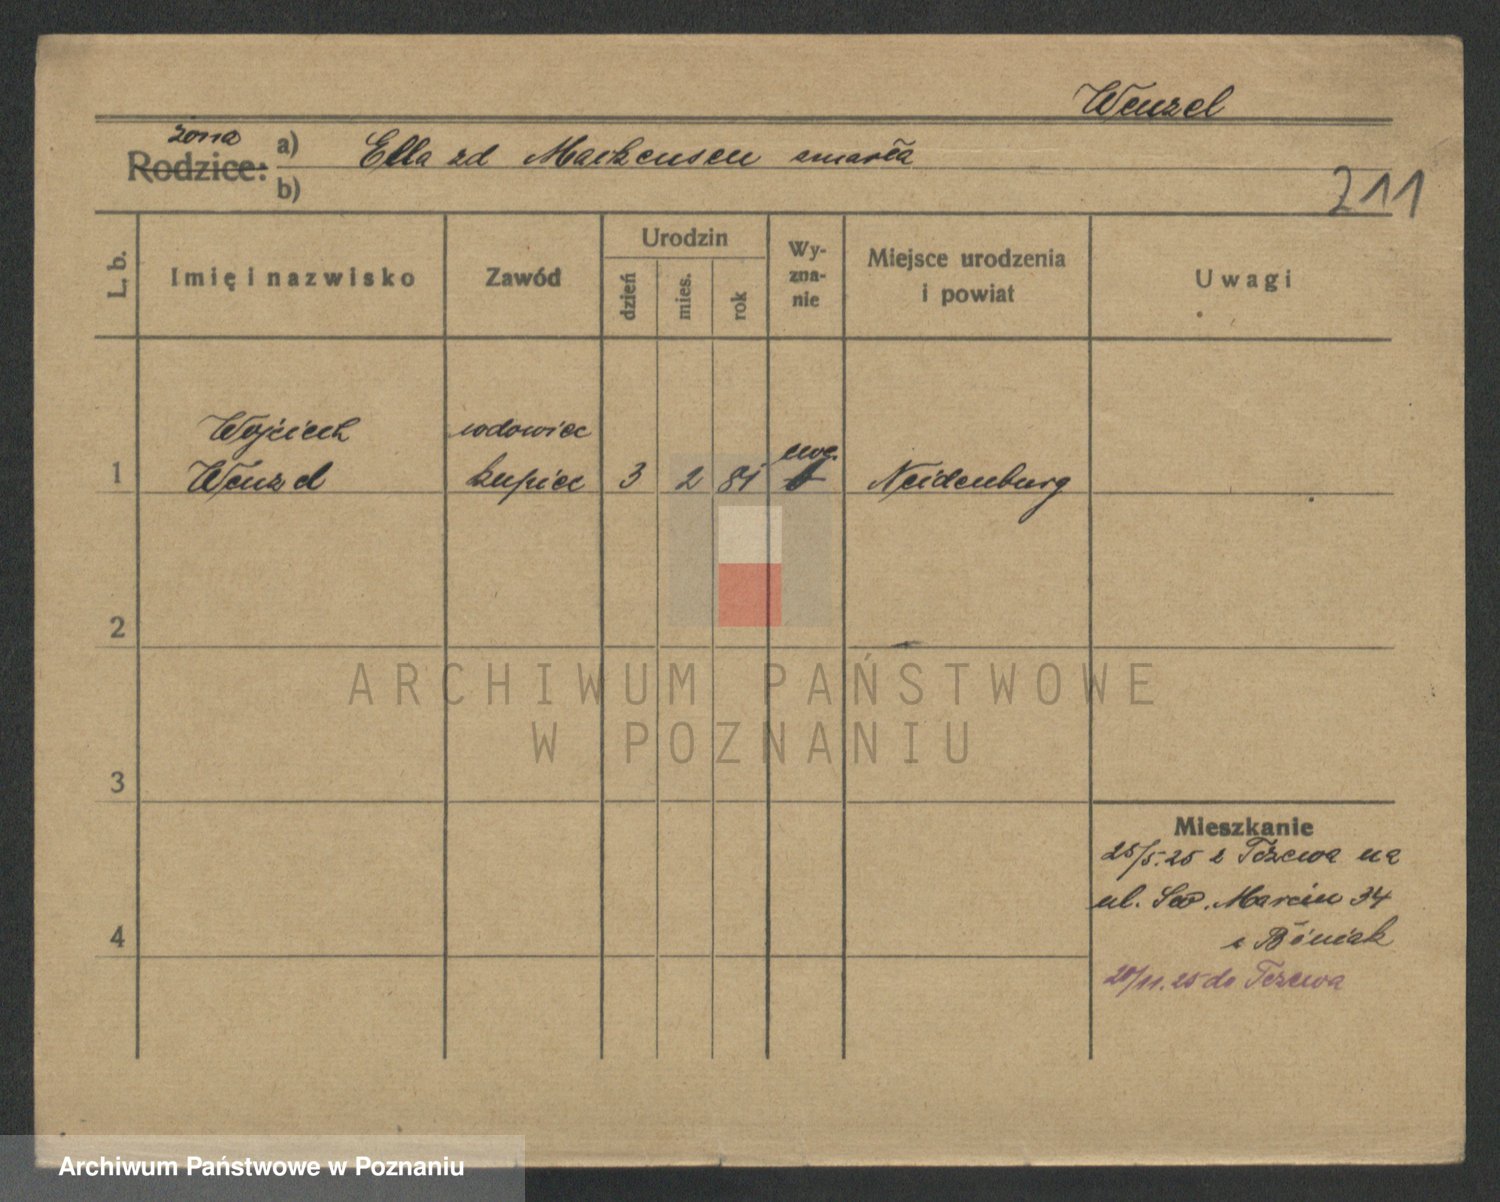 Wenzel
żona
Rodzice: a) Ella zd Mackensen zmarła
b)
211
L. b.
Imię i nazwisko
Zawód
Urodzin
dzień
mies.
rok
Wy-
zna-
nie
Miejsce urodzenia
i powiat
Uwagi
Wojciech wdowiec
1 Wenzel kupiec 3 2 81 ewg. Neidenburg
2
3
4
Mieszkanie
25/5.25 z Tczewa na
ul. Św. Marcin 34
20/11.25 do Tczewa
ARCHIWUM PAŃSTWOWE
W POZNANIU
Archiwum Państwowe w Poznaniu